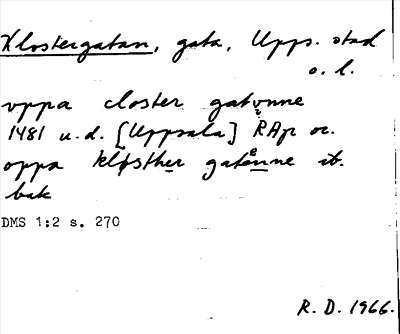 Klostergatan, gata, Upps. stad
o. l.
vppa closter gatunne
1481 u.d. [Uppsala] RAp or.
oppa kløsther gatenne ib.
bak
DMS 1:2 s. 270
R. D. 1966.